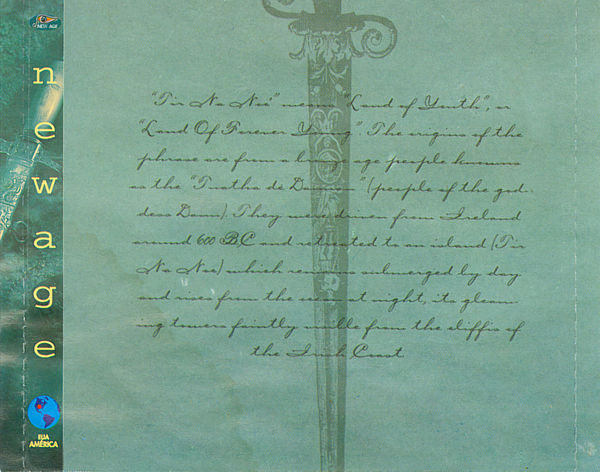 NEW AGE
newage
EUA
AMÉRICA
"Tir Na Noe" means "Land of Youth", or
"Land Of Forever Young". The origins of the
phrase are from a bronze age people known
as the "Tuatha de Danaan" (people of the god-
dess Dann). They were driven from Ireland
around 600 BC and retreated to an island (Tir
Na Noe) which remains submerged by day
and rises from the ocean at night, its gleam-
ing towers faintly visible from the cliffs of
the Irish Coast